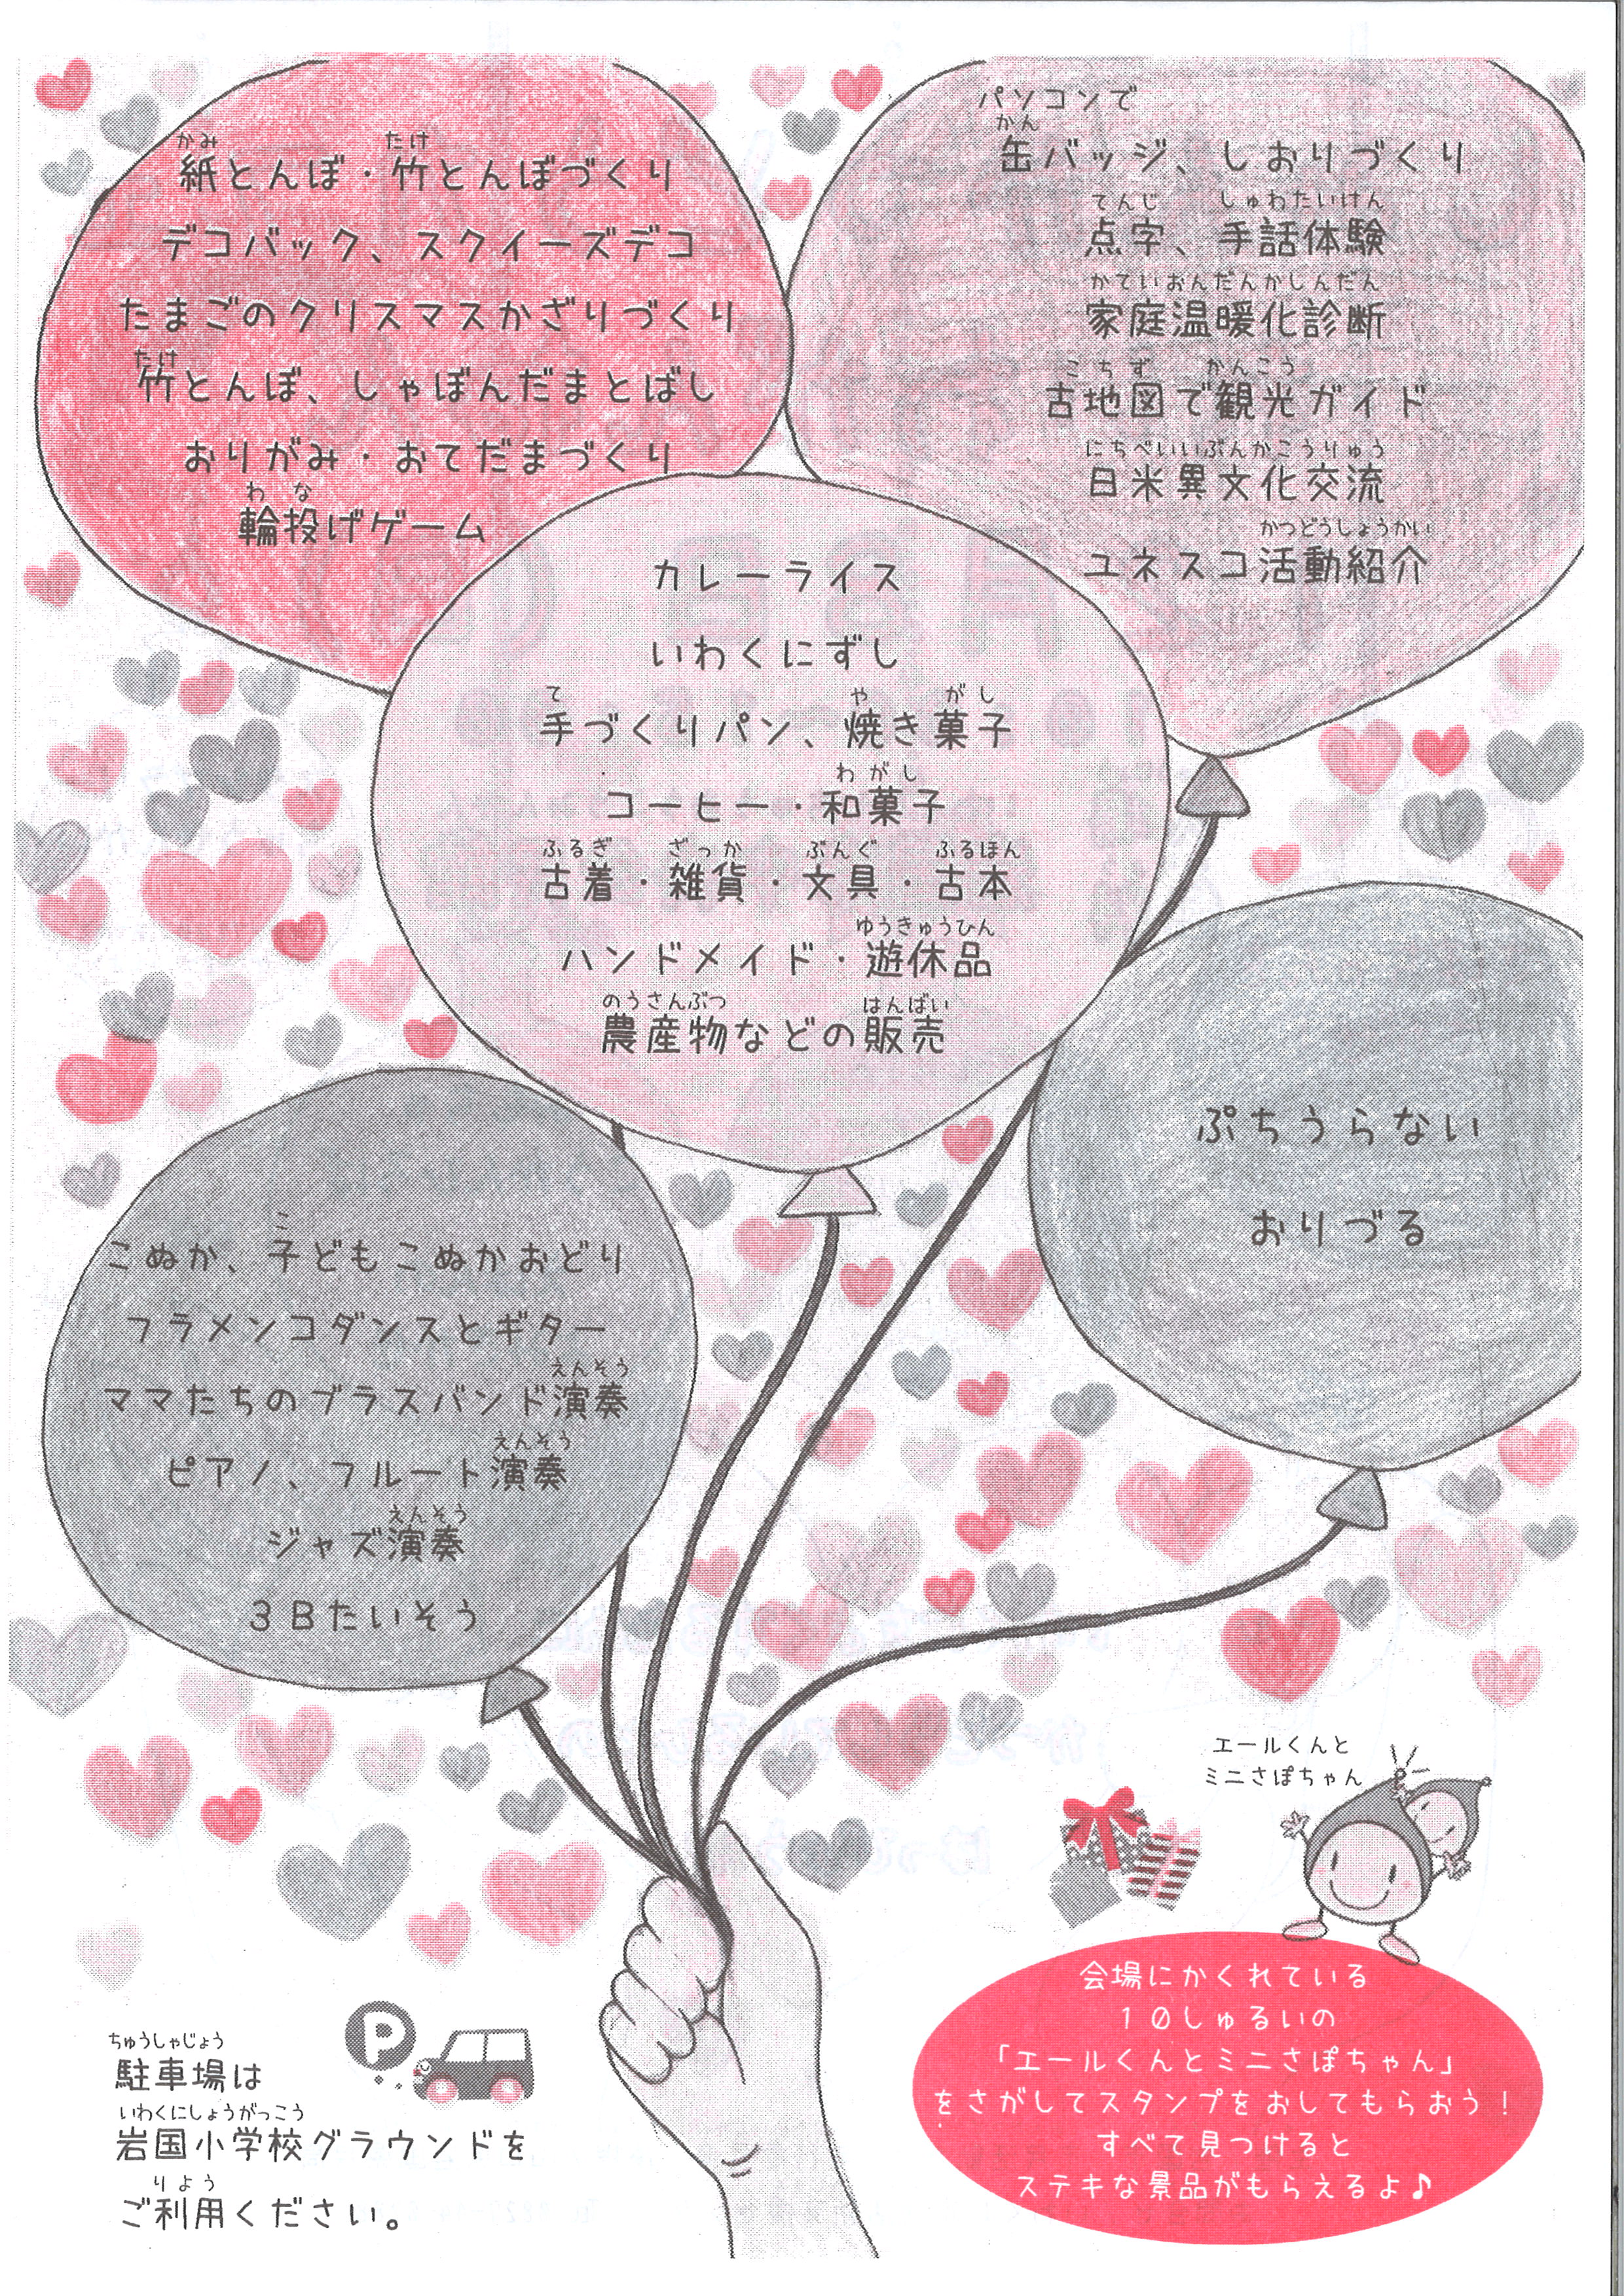 紙とんぼ・竹とんぼづくり
デコバック、スクイーズデコ
たまごのクリスマスかざりづくり
竹とんぼ、しゃぼんだまとばし
おりがみ・おてだまづくり
輪投げゲーム
パソコンで
缶バッジ、しおりづくり
点字、手話体験
家庭温暖化診断
古地図で観光ガイド
日米異文化交流
ユネスコ活動紹介
カレーライス
いわくにずし
手づくりパン、焼き菓子
コーヒー・和菓子
古着・雑貨・文具・古本
ハンドメイド・遊休品
農産物などの販売
ぷちうらない
おりづる
こぬか、子どもこぬかおどり
フラメンコダンスとギター
ママたちのブラスバンド演奏
ピアノ、フルート演奏
ジャズ演奏
3Bたいそう
エールくんと
ミニさぽちゃん
P
駐車場は
岩国小学校グラウンドを
ご利用ください。
会場にかくれている
10しゅるいの
「エールくんとミニさぽちゃん」
をさがしてスタンプをおしてもらおう!
すべて見つけると
ステキな景品がもらえるよ♪